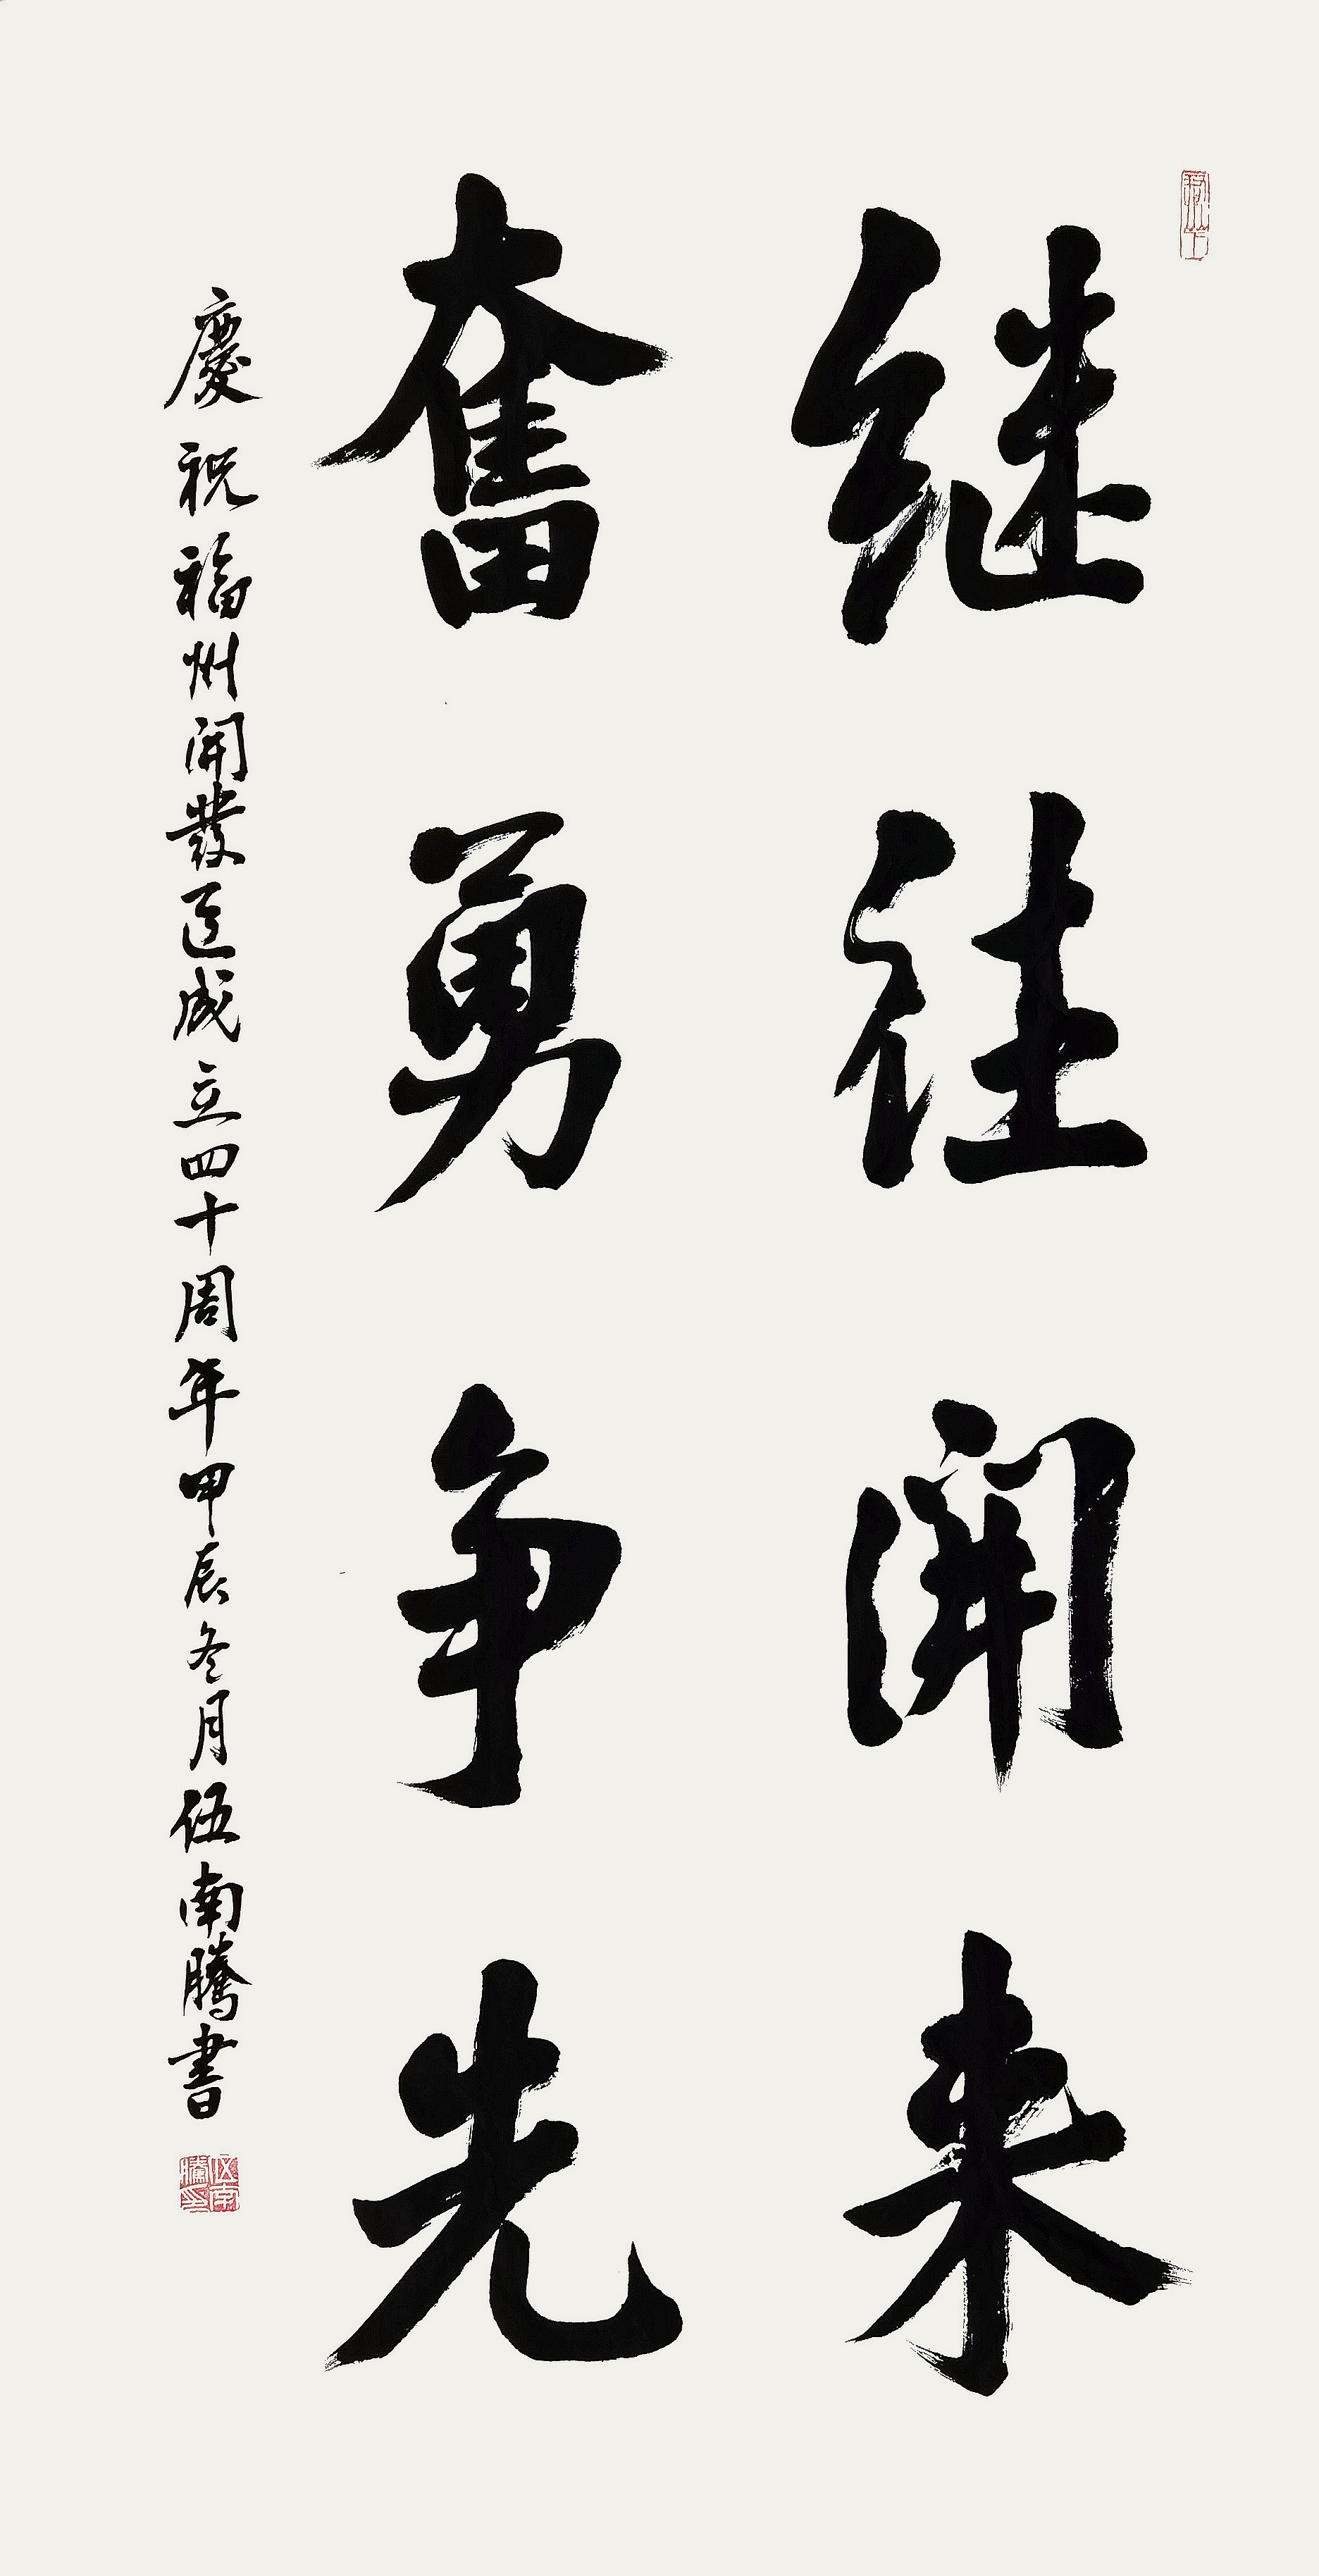 继往開来
奮勇争先
慶祝福州開發区成立四十周年甲辰冬月伍南騰書